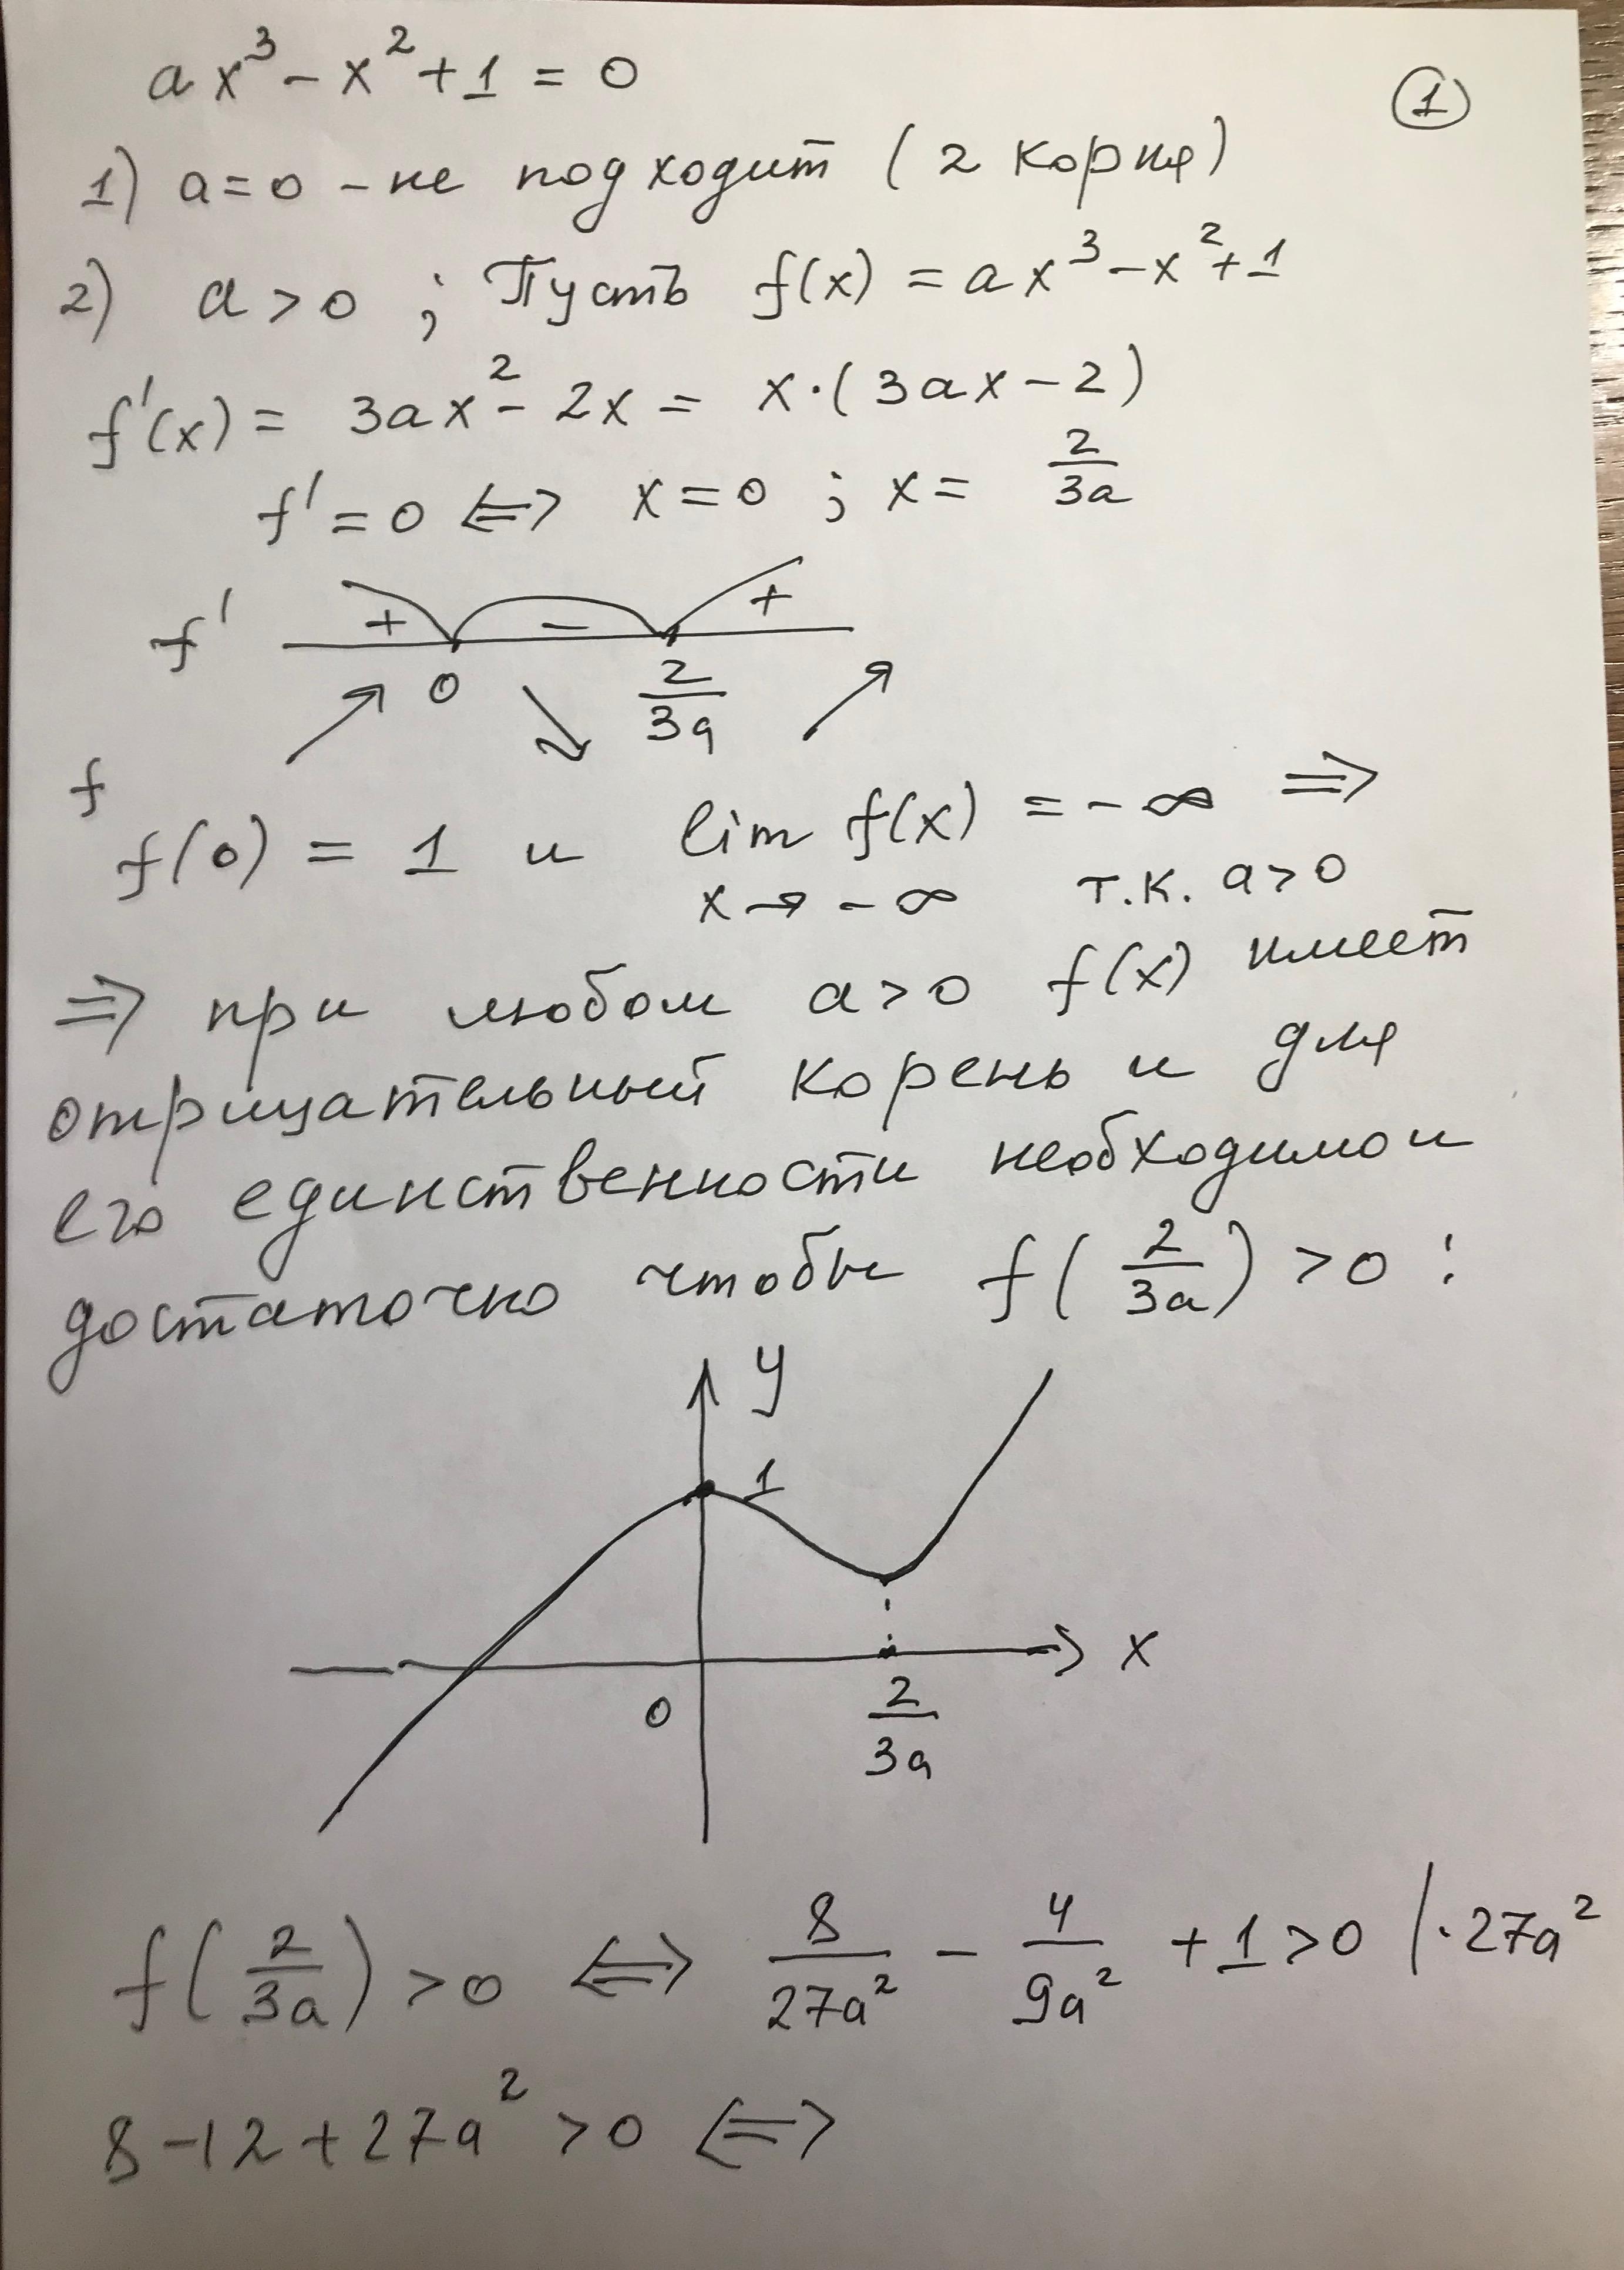 ax³ - x² + 1 = 0
①
1) a = 0 - не подходит (2 корня)
2) a > 0 ; Пусть f(x) = ax³ - x² + 1
f'(x) = 3ax² - 2x = x·(3ax - 2)
f' = 0 <=> x = 0 ; x = 2/3a
f' + - +
0 2/3a
f
f(0) = 1 и lim f(x) = -∞ =>
x → -∞ т.к. a > 0
=> при любом a > 0 f(x) имеет
отрицательный корень и для
его единственности необходимо и
достаточно чтобы f(2/3a) > 0 :
y
1
x
0
2/3a
f(2/3a) > 0 <=> 8/27a² - 4/9a² + 1 > 0 |·27a²
8 - 12 + 27a² > 0 <=>